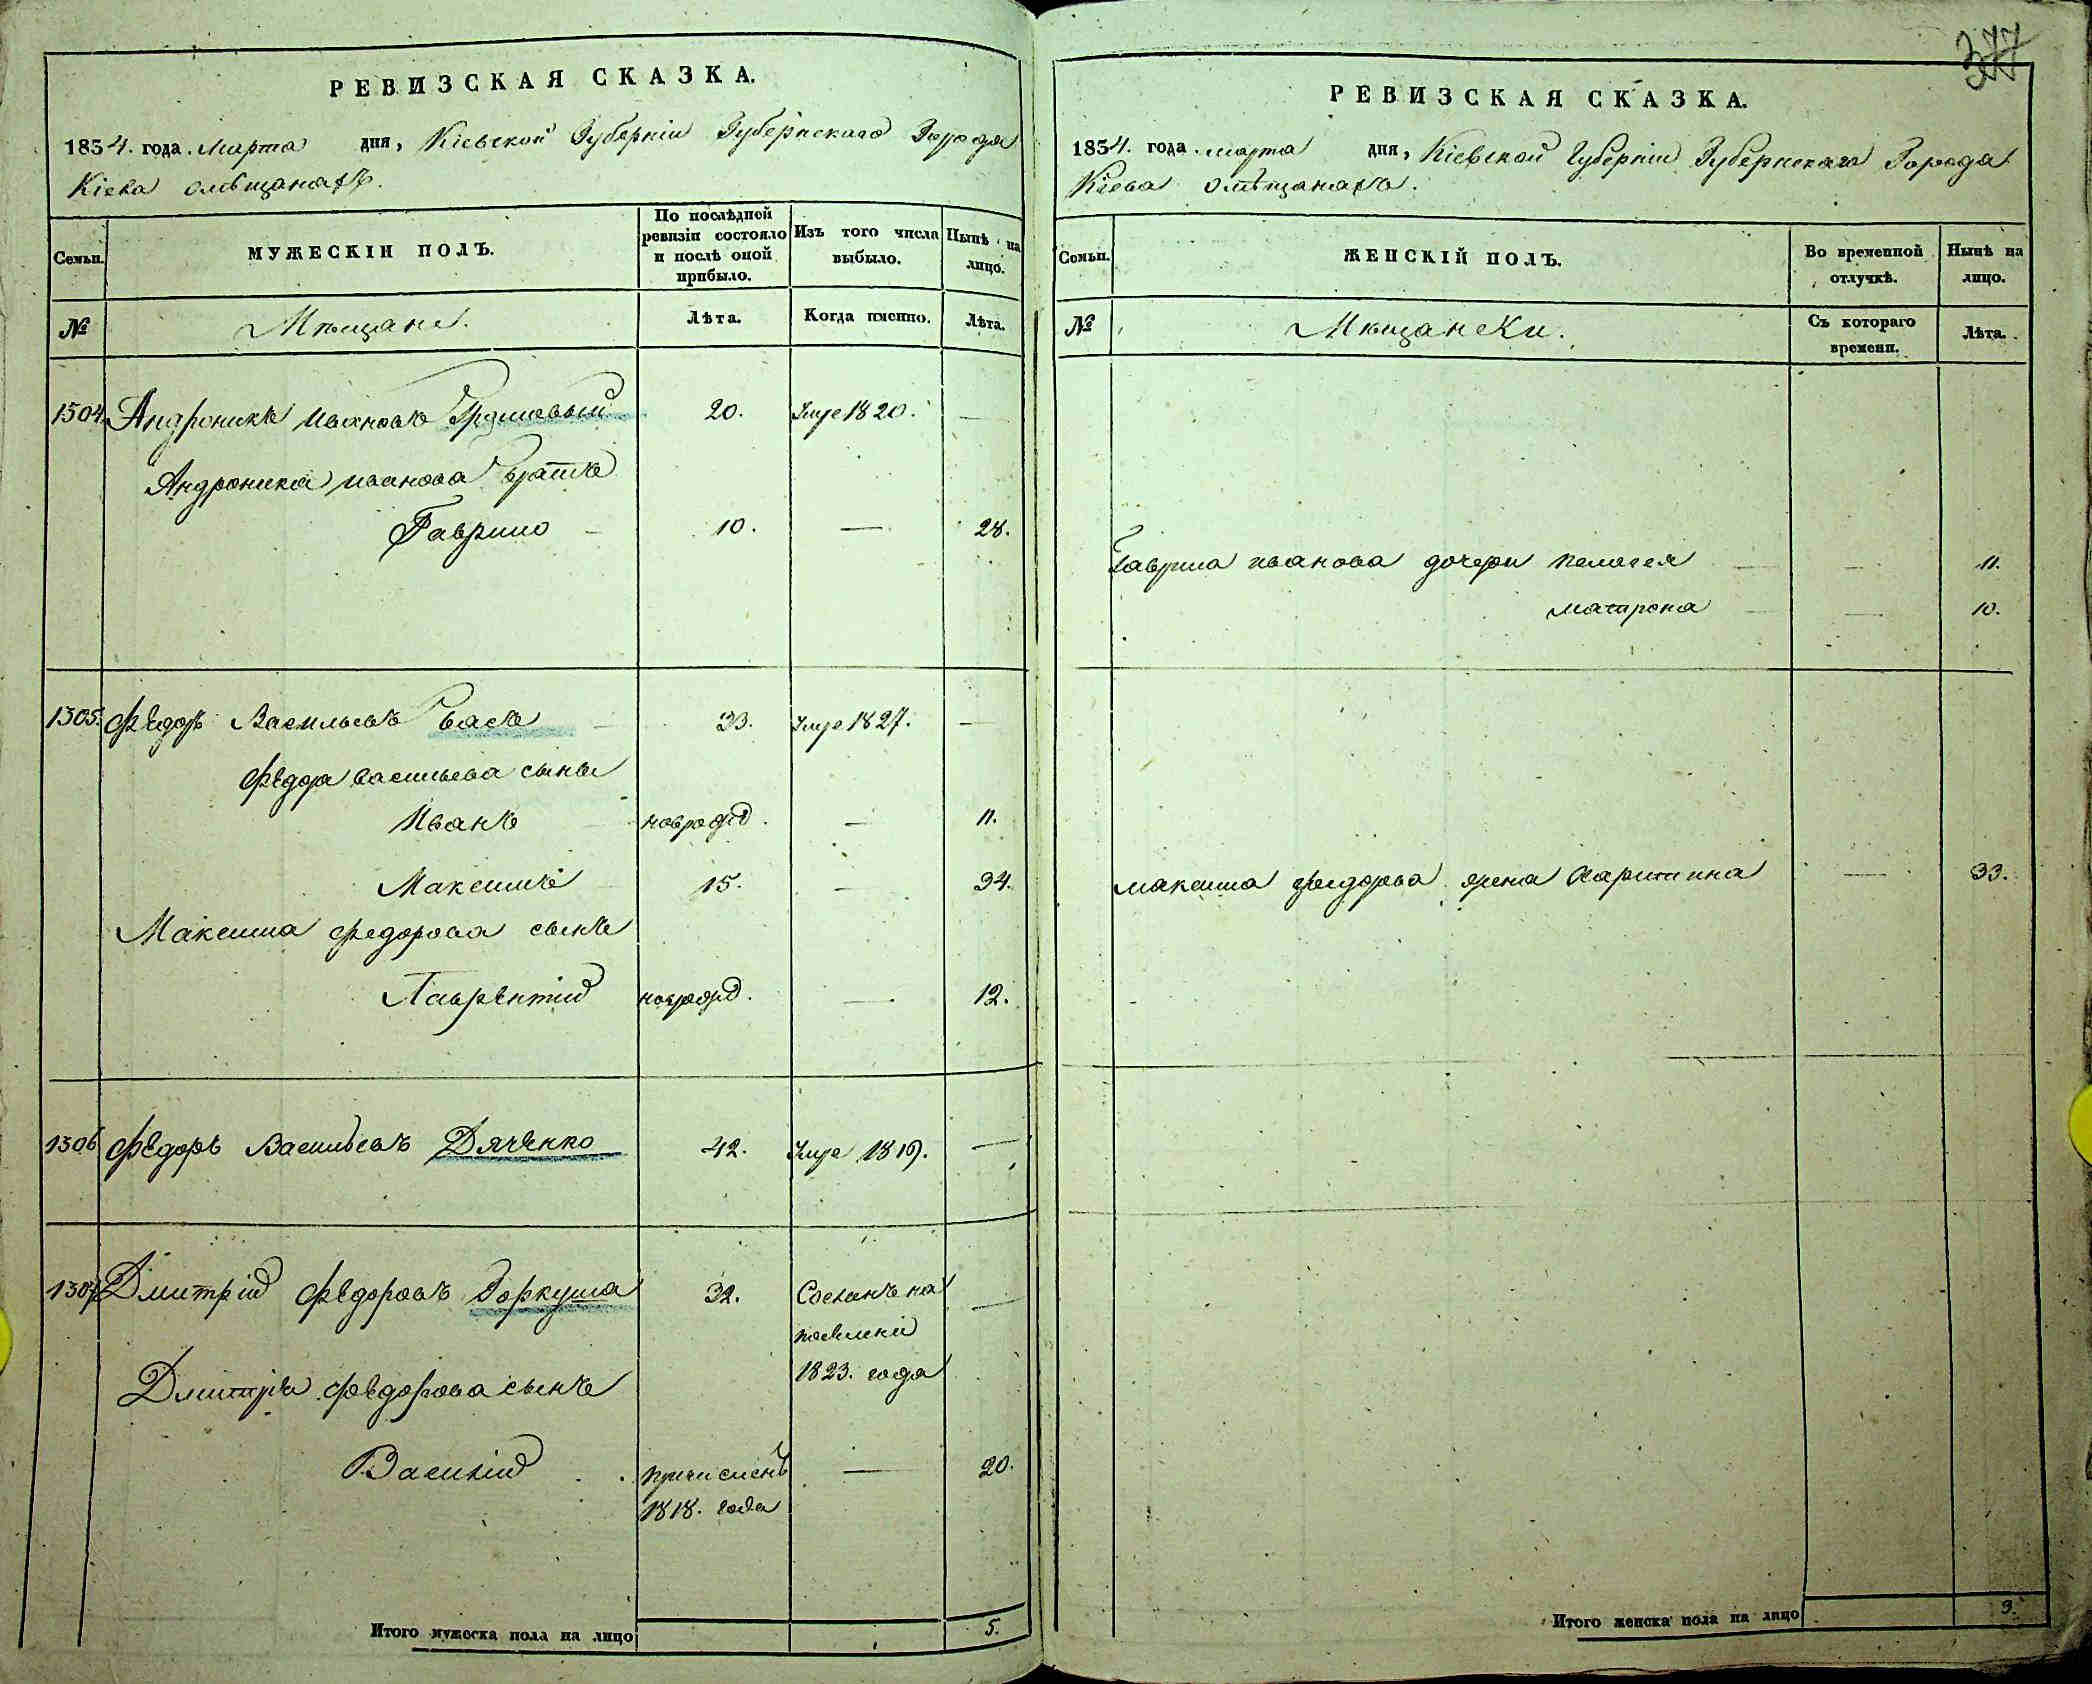 377
РЕВИЗСКАЯ СКАЗКА.
1834. года. Марта дня, Кіевской Губерніи Губернскаго Города
Кіева омѣщанахъ.
Семьи.
МУЖЕСКІЙ ПОЛЪ.
По послѣдней ревизіи состояло и послѣ оной прибыло.
Изъ того числа выбыло.
Нынѣ на лицо.
№
Мѣщане.
Лѣта.
Когда именно.
Лѣта.
1304. Андроникъ Ивановъ 20. Умре 1820. —
Андроника Иванова братъ
Гаврило 10. — 28.
1305. Федоръ Васильевъ Васъ 33. Умре 1827. —
Федора Васильева сыны
Иванъ новрожд. — 11.
Максимъ 15. — 34.
Максима Федорова сынъ
Лаврентій новрожд. — 12.
1306 Федоръ Васильевъ Дяченко 42. Умре 1819. —
1307 Дмитрій Федоровъ Горкуша 32. Сосланъ на —
поселеніе
1823. года
Дмитрія Федорова сынъ
Василій причисленъ — 20.
1818. года
Итого мужеска пола на лицо 5.
РЕВИЗСКАЯ СКАЗКА.
1834. года. марта дня, Кіевской Губерніи Губернскаго Города
Кіева омѣщанахъ.
Семьи.
ЖЕНСКІЙ ПОЛЪ.
Во временной отлучкѣ.
Нынѣ на лицо.
№
Мѣщански.
Съ котораго времени.
Лѣта.
Гаврила Иванова дочери Пелагея — 11.
Матрона — 10.
Максима Федорова жена Харитина — 33.
Итого женска пола на лицо 3.